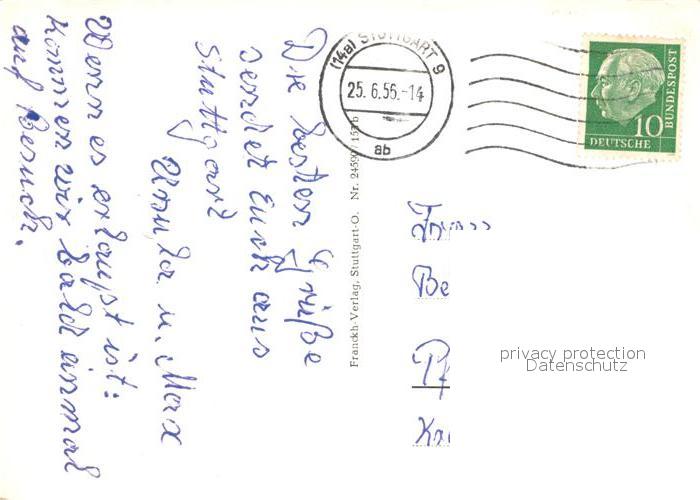 Die besten Grüße
sendet Euch aus
Stuttgart
Ursula u. Max
Wenn es erlaubt ist:
kommen wir bald einmal
auf Besuch.
Franckh-Verlag, Stuttgart-O. Nr. 24590/153b
(14a) STUTTGART 9
25.6.56.-14
ab
DEUTSCHE
BUNDESPOST
10
Be
Pf
privacy protection
Datenschutz